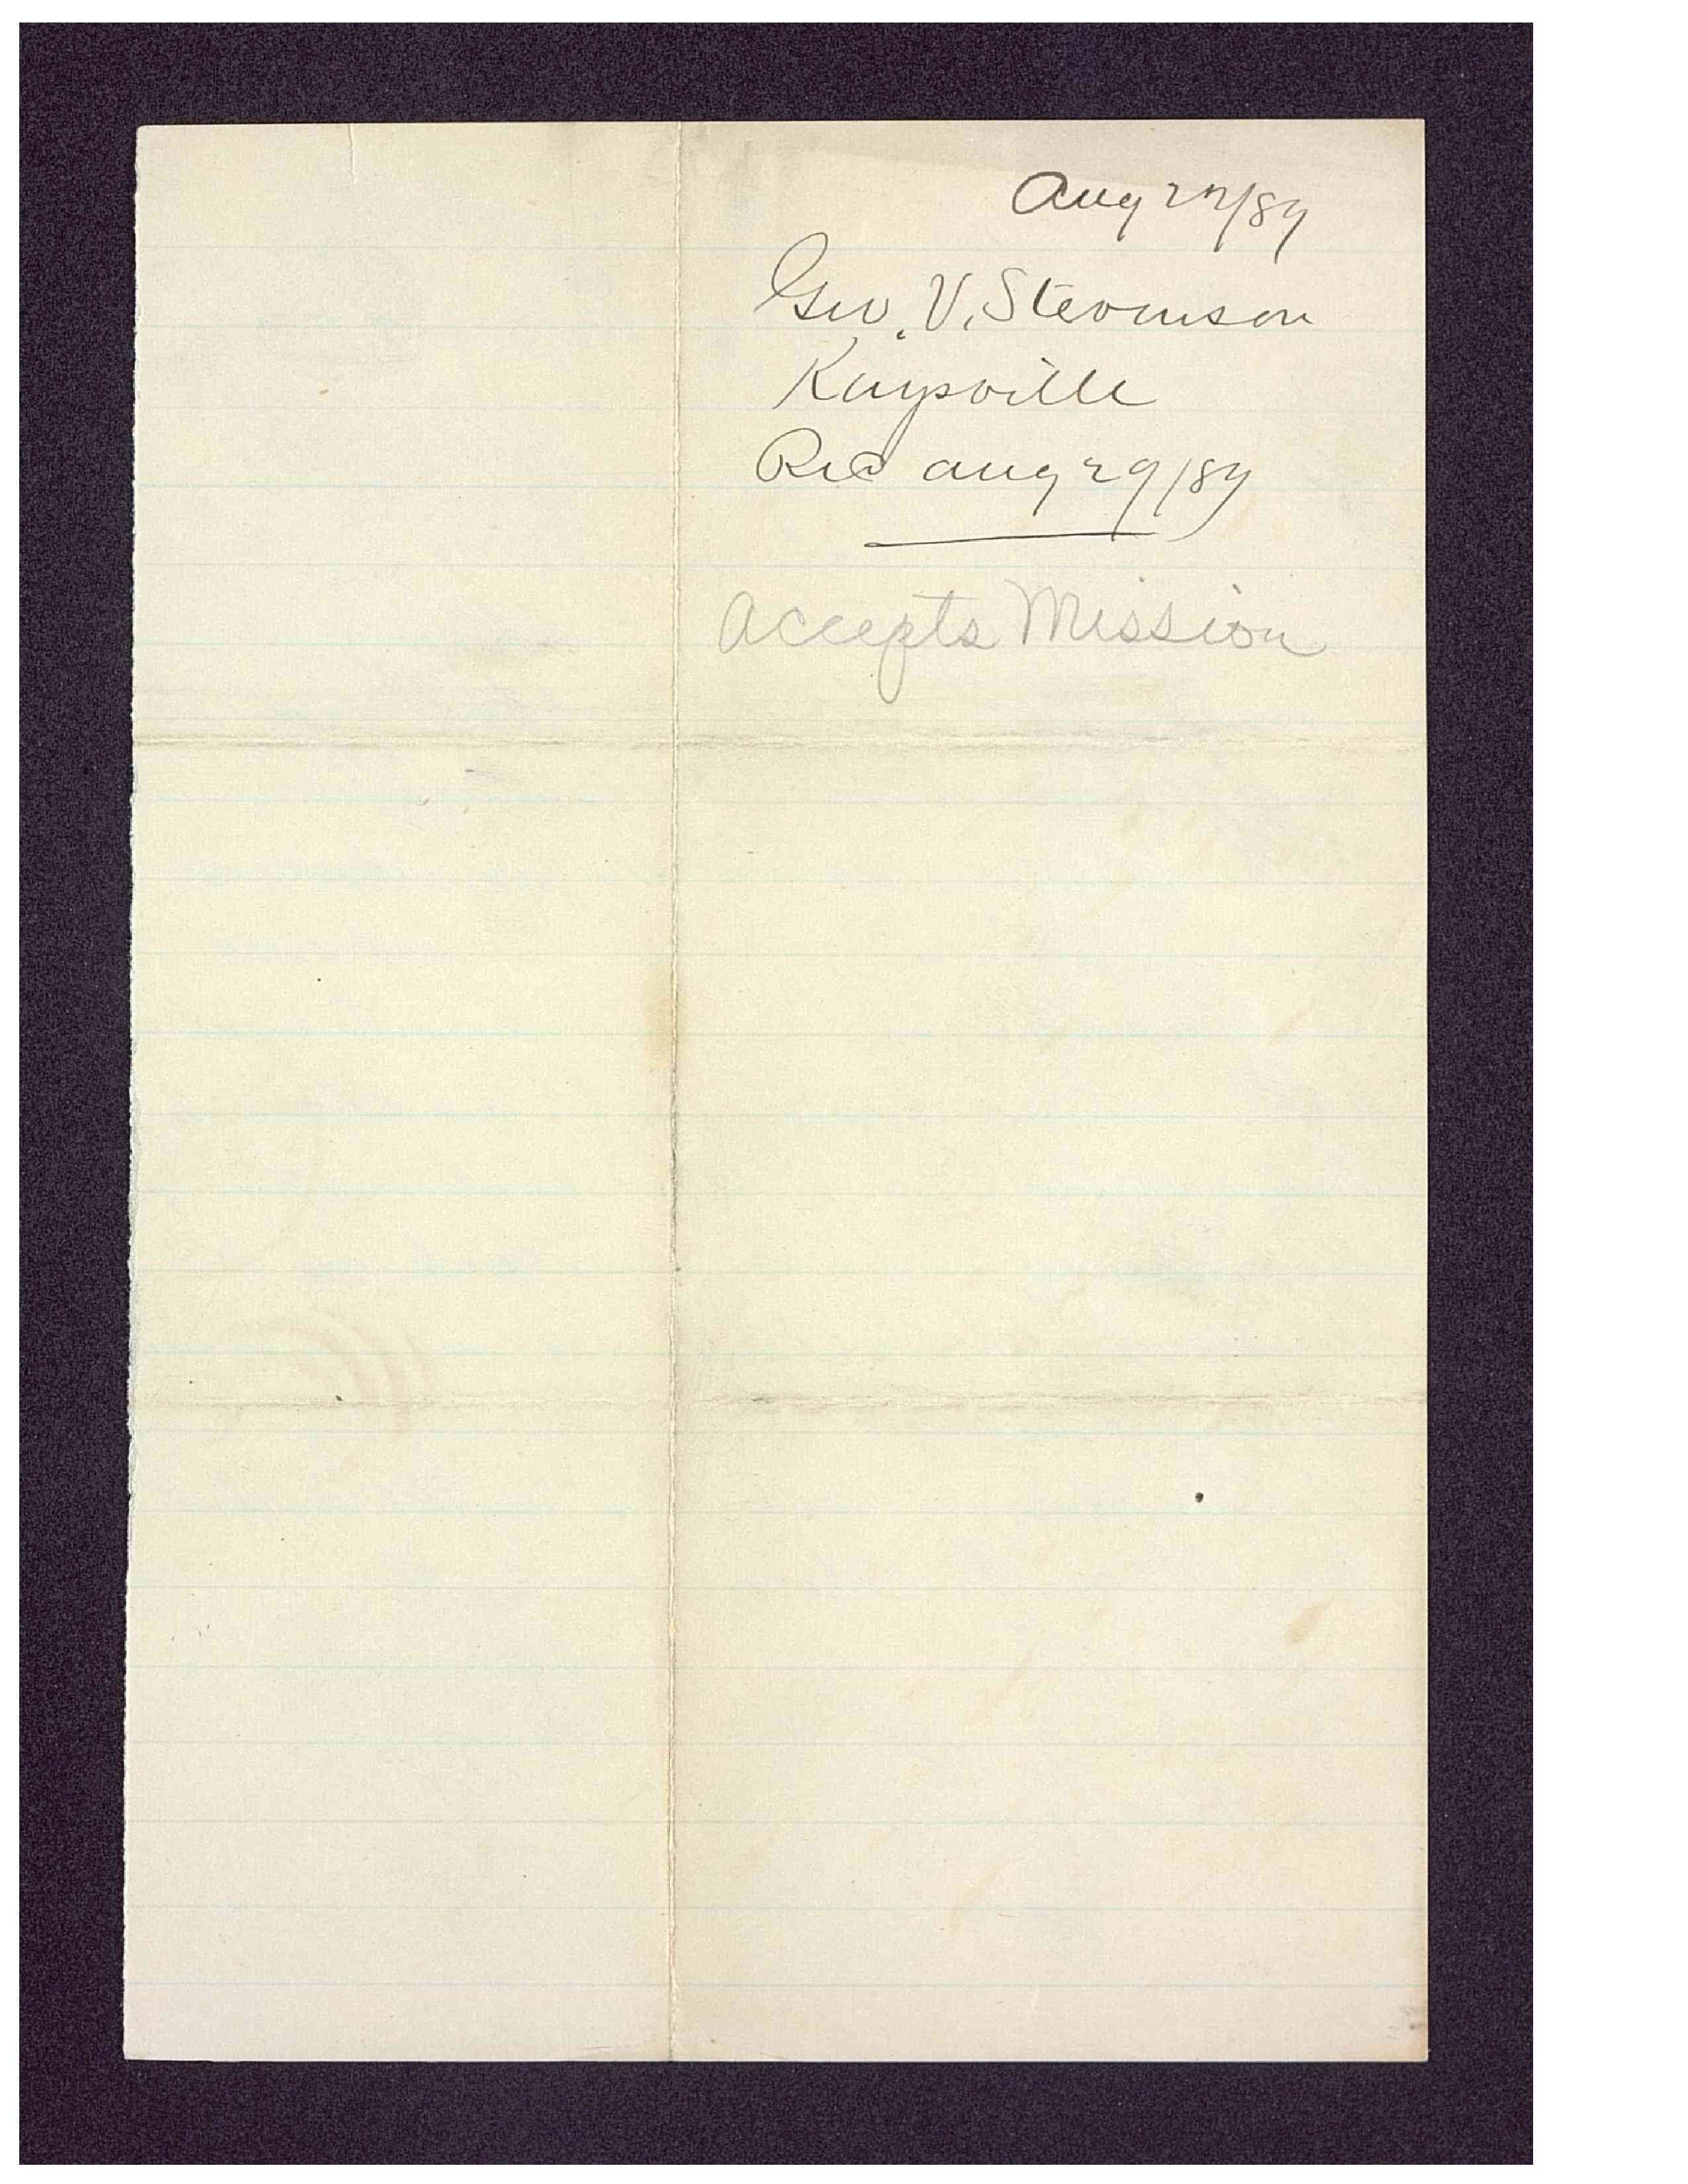 Aug 27/89
Geo. V. Stevenson
Kaysville
Rec Aug 29/89
Accepts Mission